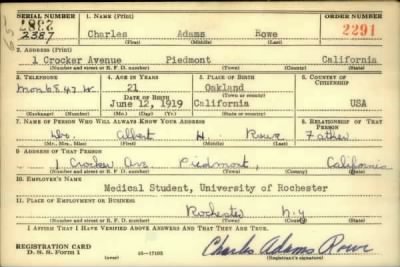 SERIAL NUMBER 1. NAME (Print) ORDER NUMBER
2387 Charles Adams Rowe 2291
(First) (Middle) (Last)
2. ADDRESS (Print)
1 Crocker Avenue Piedmont California
(Number and street or R. F. D. number) (Town) (County) (State)
3. TELEPHONE 4. AGE IN YEARS 5. PLACE OF BIRTH 6. COUNTRY OF CITIZENSHIP
21 Oakland
DATE OF BIRTH (Town or county)
June 12, 1919 California USA
(Exchange) (Number) (Mo.) (Day) (Yr.) (State or country)
7. NAME OF PERSON WHO WILL ALWAYS KNOW YOUR ADDRESS 8. RELATIONSHIP OF THAT PERSON
Dr. Albert H. Rowe Father
(Mr., Mrs., Miss) (First) (Middle) (Last)
9. ADDRESS OF THAT PERSON
1 Crocker Ave Piedmont, California
(Number and street or R. F. D. number) (Town) (County) (State)
10. EMPLOYER'S NAME
Medical Student, University of Rochester
11. PLACE OF EMPLOYMENT OR BUSINESS
Rochester N.Y
(Number and street or R. F. D. number) (Town) (County) (State)
I AFFIRM THAT I HAVE VERIFIED ABOVE ANSWERS AND THAT THEY ARE TRUE.
REGISTRATION CARD
D. S. S. Form 1 Charles Adams Rowe
(Registrant's signature)